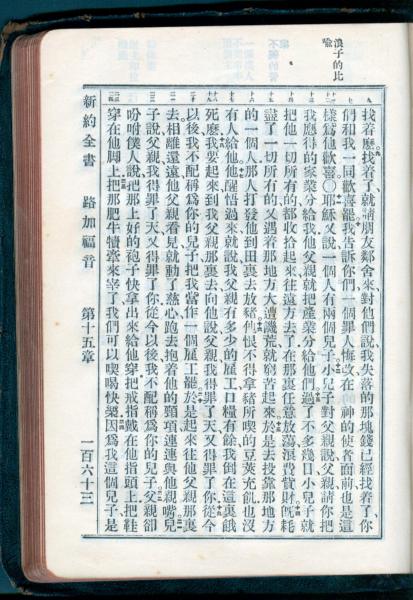 浪子的比喻
找着麽、找着了、就請朋友鄰舍來、對他們說、我失落的那塊錢已經找着了、你
們和我一同歡喜罷、我告訴你們、一個罪人悔改、在 神的使者面前、也是這
樣爲他歡喜○耶穌又說、一個人有兩個兒子、小兒子對父親說、父親、請你把
我應得的家業分給我、他父親就把產業分給他們、過了不多幾日、小兒子就
把他一切所有的都收拾起來、往遠方去了、在那裏任意放蕩、浪費貲財、旣耗
盡了一切所有的、又遇着那地方大遭饑荒、就窮苦起來、於是去投靠那地方
的一個人、那人打發他到田裏去放猪、他恨不得拿猪所喫的豆莢充飢、也沒
有人給他、他醒悟過來、就說、我父親有多少的雇工、口糧有餘、我倒在這裏餓
死麽、我要起來、到我父親那裏去、向他說、父親、我得罪了天、又得罪了你、從今
以後、我不配稱爲你的兒子、把我當作一個雇工罷、於是起來往他父親那裏
去、相離還遠、他父親看見、就動了慈心、跑去抱着他的頸項、連連與他親嘴、兒
子說、父親、我得罪了天、又得罪了你、從今以後、我不配稱爲你的兒子、父親卻
吩咐僕人說、把那上好的袍子快拿出來給他穿、把戒指戴在他指頭上、把鞋
穿在他脚上、把那肥牛犢牽來宰了、我們可以喫喝快樂、因爲我這個兒子是
新約全書 路加福音 第十五章 一百六十三